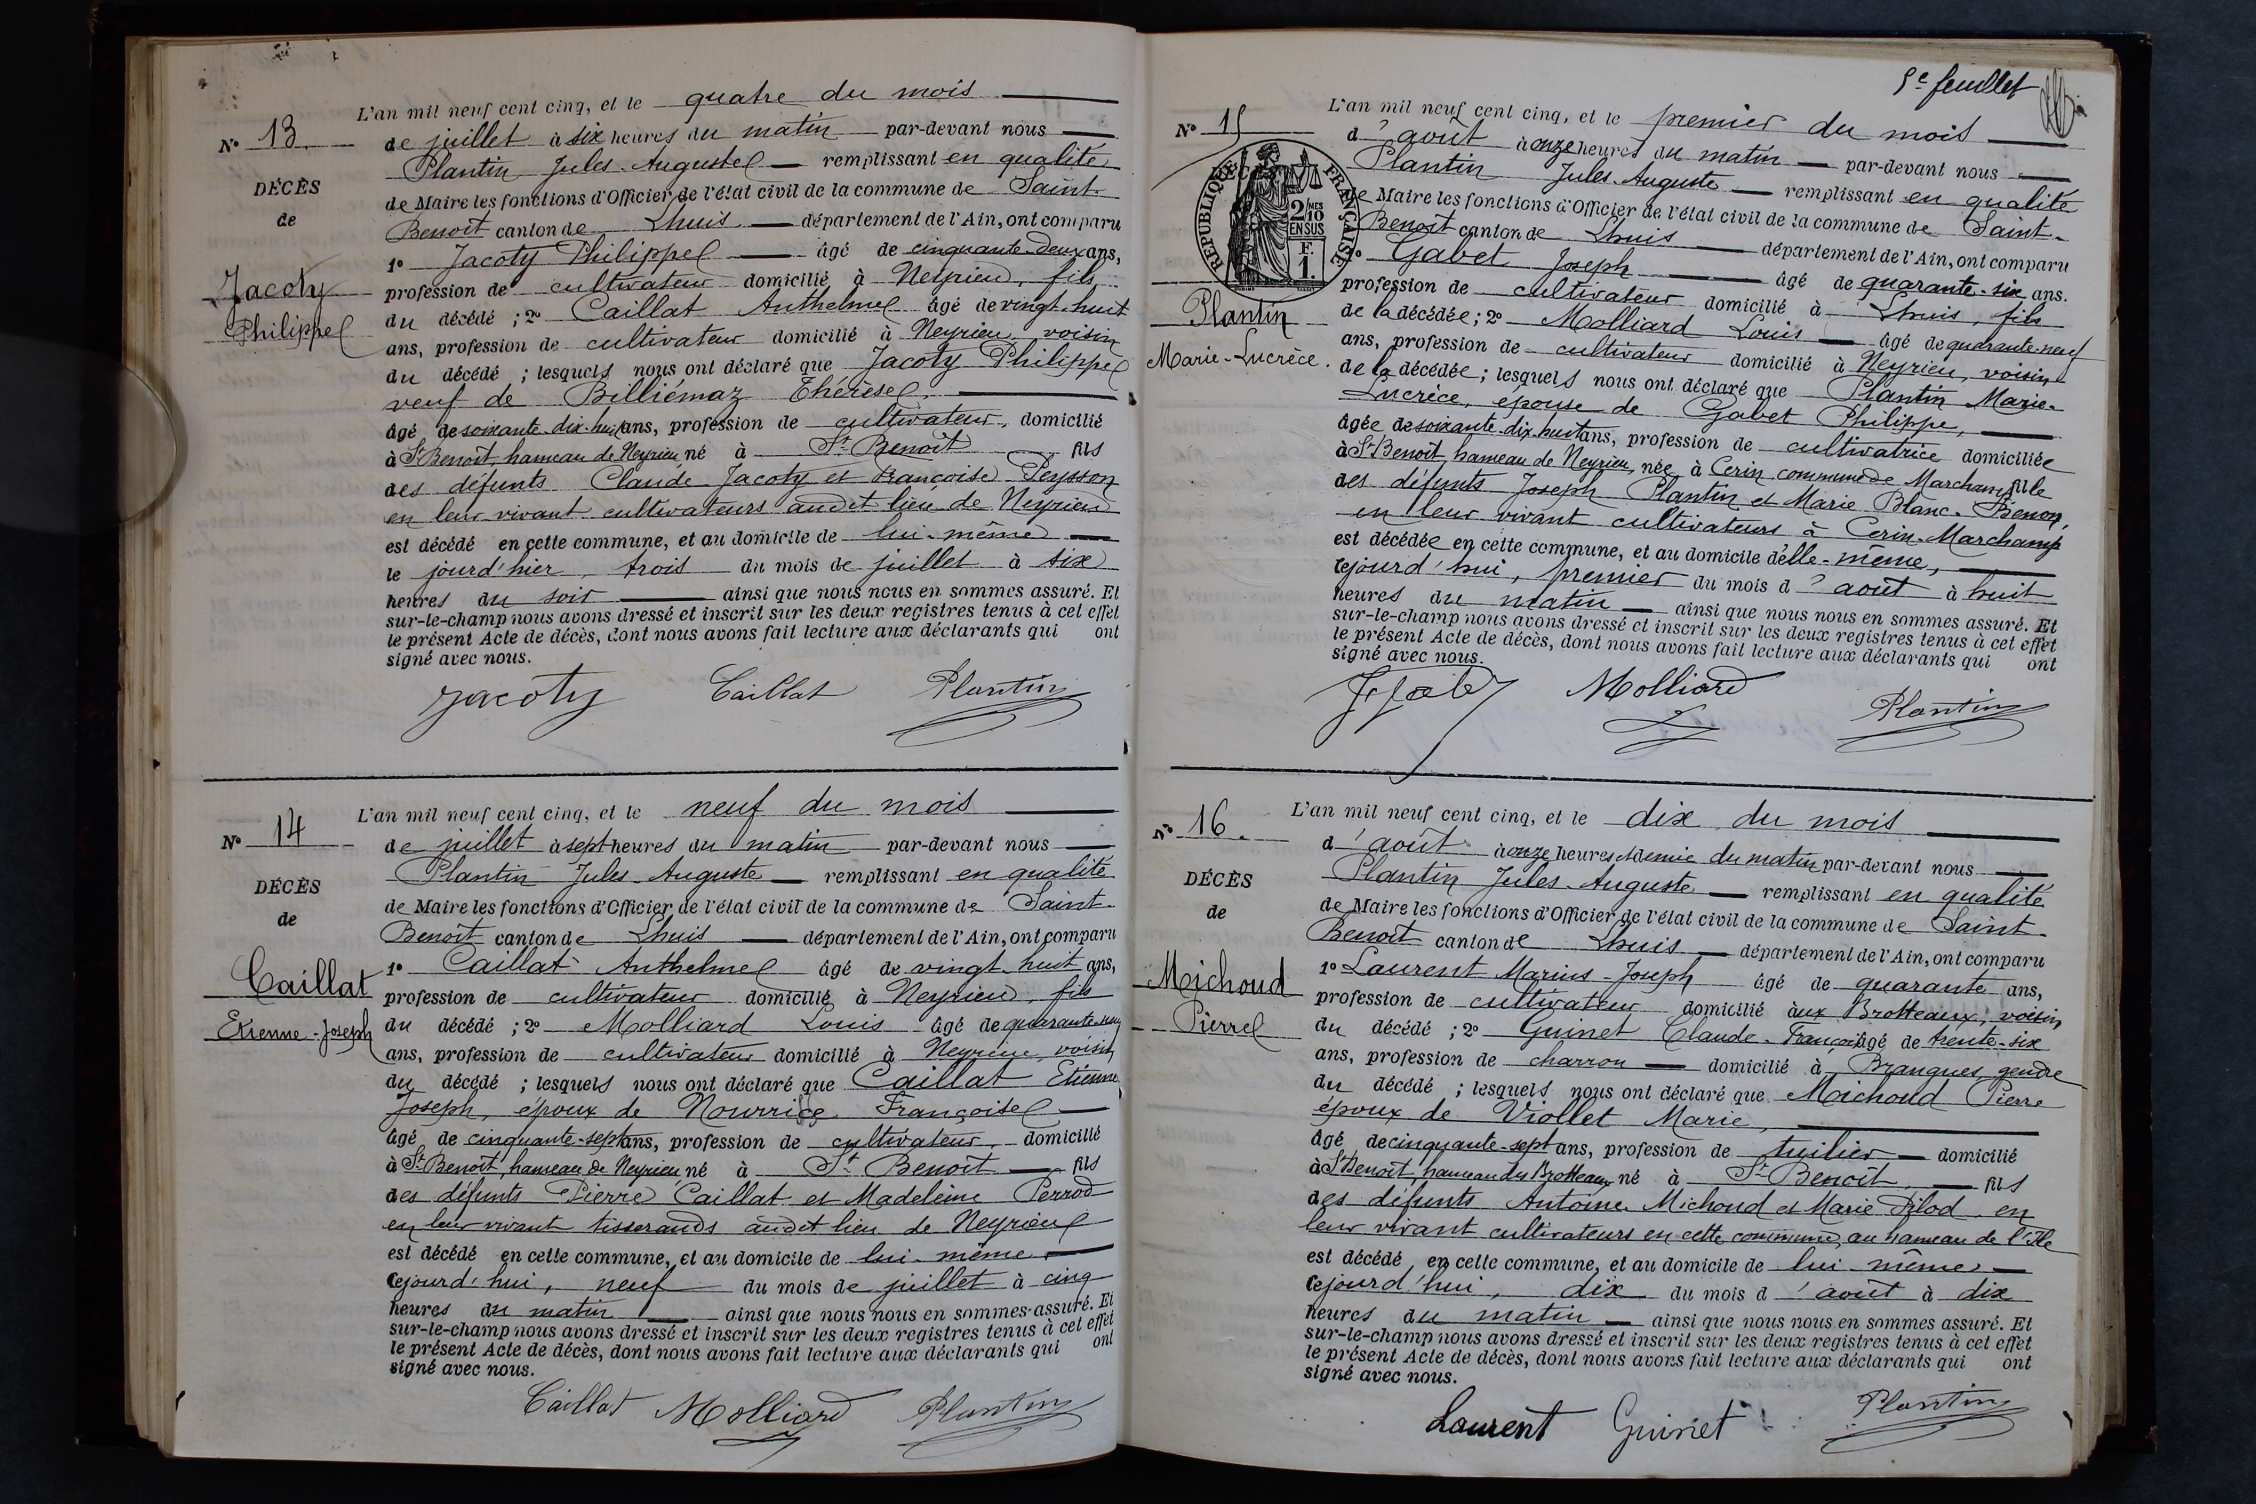 L'an mil neuf cent cinq, et le quatre du mois
No 13.
de juillet à six heures du matin par-devant nous
Plantin Jules-Auguste remplissant en qualité
DÉCÈS
de Maire les fonctions d'Officier de l'état civil de la commune de Saint-
de
Benoît canton de Lhuis département de l'Ain, ont comparu
1o Jacoty Philippe âgé de cinquante-deux ans,
Jacoty
profession de cultivateur domicilié à Neyrieu, fils
Philippe
du décédé ; 2o Caillat Anthelme âgé de vingt-huit
ans, profession de cultivateur domicilié à Neyrieu, voisin
du décédé ; lesquels nous ont déclaré que Jacoty Philippe
veuf de Billiémaz Thérèse.
âgé de soixante-dix-huit ans, profession de cultivateur, domicilié
à St Benoît, hameau de Neyrieu né à St Benoît fils
des défunts Claude Jacoty et Françoise Peysson
en leur vivant cultivateurs audit lieu de Neyrieu
est décédé en cette commune, et au domicile de lui-même
le jourd'hier, trois du mois de juillet à six
heures du soir ainsi que nous nous en sommes assuré. Et
sur-le-champ nous avons dressé et inscrit sur les deux registres tenus à cet effet
le présent Acte de décès, dont nous avons fait lecture aux déclarants qui ont
signé avec nous.
Jacoty Caillat Plantin
L'an mil neuf cent cinq, et le neuf du mois
No 14
de juillet à sept heures du matin par-devant nous
Plantin Jules-Auguste remplissant en qualité
DÉCÈS
de Maire les fonctions d'Officier de l'état civil de la commune de Saint-
de
Benoît canton de Lhuis département de l'Ain, ont comparu
1o Caillat Anthelme âgé de vingt-huit ans,
Caillat
profession de cultivateur domicilié à Neyrieu, fils
Etienne-Joseph
du décédé ; 2o Molliard Louis âgé de quarante-neuf
ans, profession de cultivateur domicilié à Neyrieu, voisin
du décédé ; lesquels nous ont déclaré que Caillat Etienne
Joseph, époux de Nourrice Françoise
âgé de cinquante-sept ans, profession de cultivateur, domicilié
à St Benoît, hameau de Neyrieu né à St Benoît fils
des défunts Pierre Caillat et Madeleine Perrod
en leur vivant tisserands audit lieu de Neyrieu
est décédé en cette commune, et au domicile de lui-même
cejourd'hui, neuf du mois de juillet à cinq
heures du matin ainsi que nous nous en sommes assuré. Et
sur-le-champ nous avons dressé et inscrit sur les deux registres tenus à cet effet
le présent Acte de décès, dont nous avons fait lecture aux déclarants qui ont
signé avec nous.
Caillat Molliard Plantin
5e feuillet
L'an mil neuf cent cinq, et le premier du mois
No 15
d'août à onze heures du matin par-devant nous
Plantin Jules-Auguste remplissant en qualité
RÉPUBLIQUE FRANÇAISE
2/10 MES
EN SUS
F.
1.
de Maire les fonctions d'Officier de l'état civil de la commune de Saint-
Benoît canton de Lhuis département de l'Ain, ont comparu
1o Gabet Joseph âgé de quarante-six ans.
profession de cultivateur domicilié à Lhuis, fils
Plantin
de la décédée ; 2o Molliard Louis âgé de quarante-neuf
Marie-Lucrèce.
ans, profession de cultivateur domicilié à Neyrieu, voisin
de la décédée ; lesquels nous ont déclaré que Plantin Marie-
Lucrèce, épouse de Gabet Philippe,
âgée de soixante-dix-huit ans, profession de cultivatrice domiciliée
à St Benoît, hameau de Neyrieu, née à Cerin commune de Marchamp fille
des défunts Joseph Plantin et Marie Blanc-Benon,
en leur vivant cultivateurs à Cerin-Marchamp
est décédée en cette commune, et au domicile d'elle-même,
cejourd'hui, premier du mois d'août à huit
heures du matin ainsi que nous nous en sommes assuré. Et
sur-le-champ nous avons dressé et inscrit sur les deux registres tenus à cet effet
le présent Acte de décès, dont nous avons fait lecture aux déclarants qui ont
signé avec nous.
Molliard Plantin
L'an mil neuf cent cinq, et le dix du mois
No 16.
d'août à onze heures et demie du matin par-devant nous
Plantin Jules-Auguste remplissant en qualité
DÉCÈS
de Maire les fonctions d'Officier de l'état civil de la commune de Saint-
de
Benoît canton de Lhuis département de l'Ain, ont comparu
1o Laurent Marius-Joseph âgé de quarante ans,
Michoud
profession de cultivateur domicilié aux Brotteaux, voisin
Pierre
du décédé ; 2o Guinet Claude-François âgé de trente-six
ans, profession de charron domicilié à Brangues, gendre
du décédé ; lesquels nous ont déclaré que Michoud Pierre
époux de Viollet Marie,
âgé de cinquante-sept ans, profession de tuilier domicilié
à St Benoît, hameau des Brotteaux né à St Benoît, fils
des défunts Antoine Michoud et Marie Pilod en
leur vivant cultivateurs en cette commune, au hameau de l'Ile
est décédé en cette commune, et au domicile de lui-même
cejourd'hui, dix du mois d'août à dix
heures du matin ainsi que nous nous en sommes assuré. Et
sur-le-champ nous avons dressé et inscrit sur les deux registres tenus à cet effet
le présent Acte de décès, dont nous avons fait lecture aux déclarants qui ont
signé avec nous.
Laurent Guinet Plantin